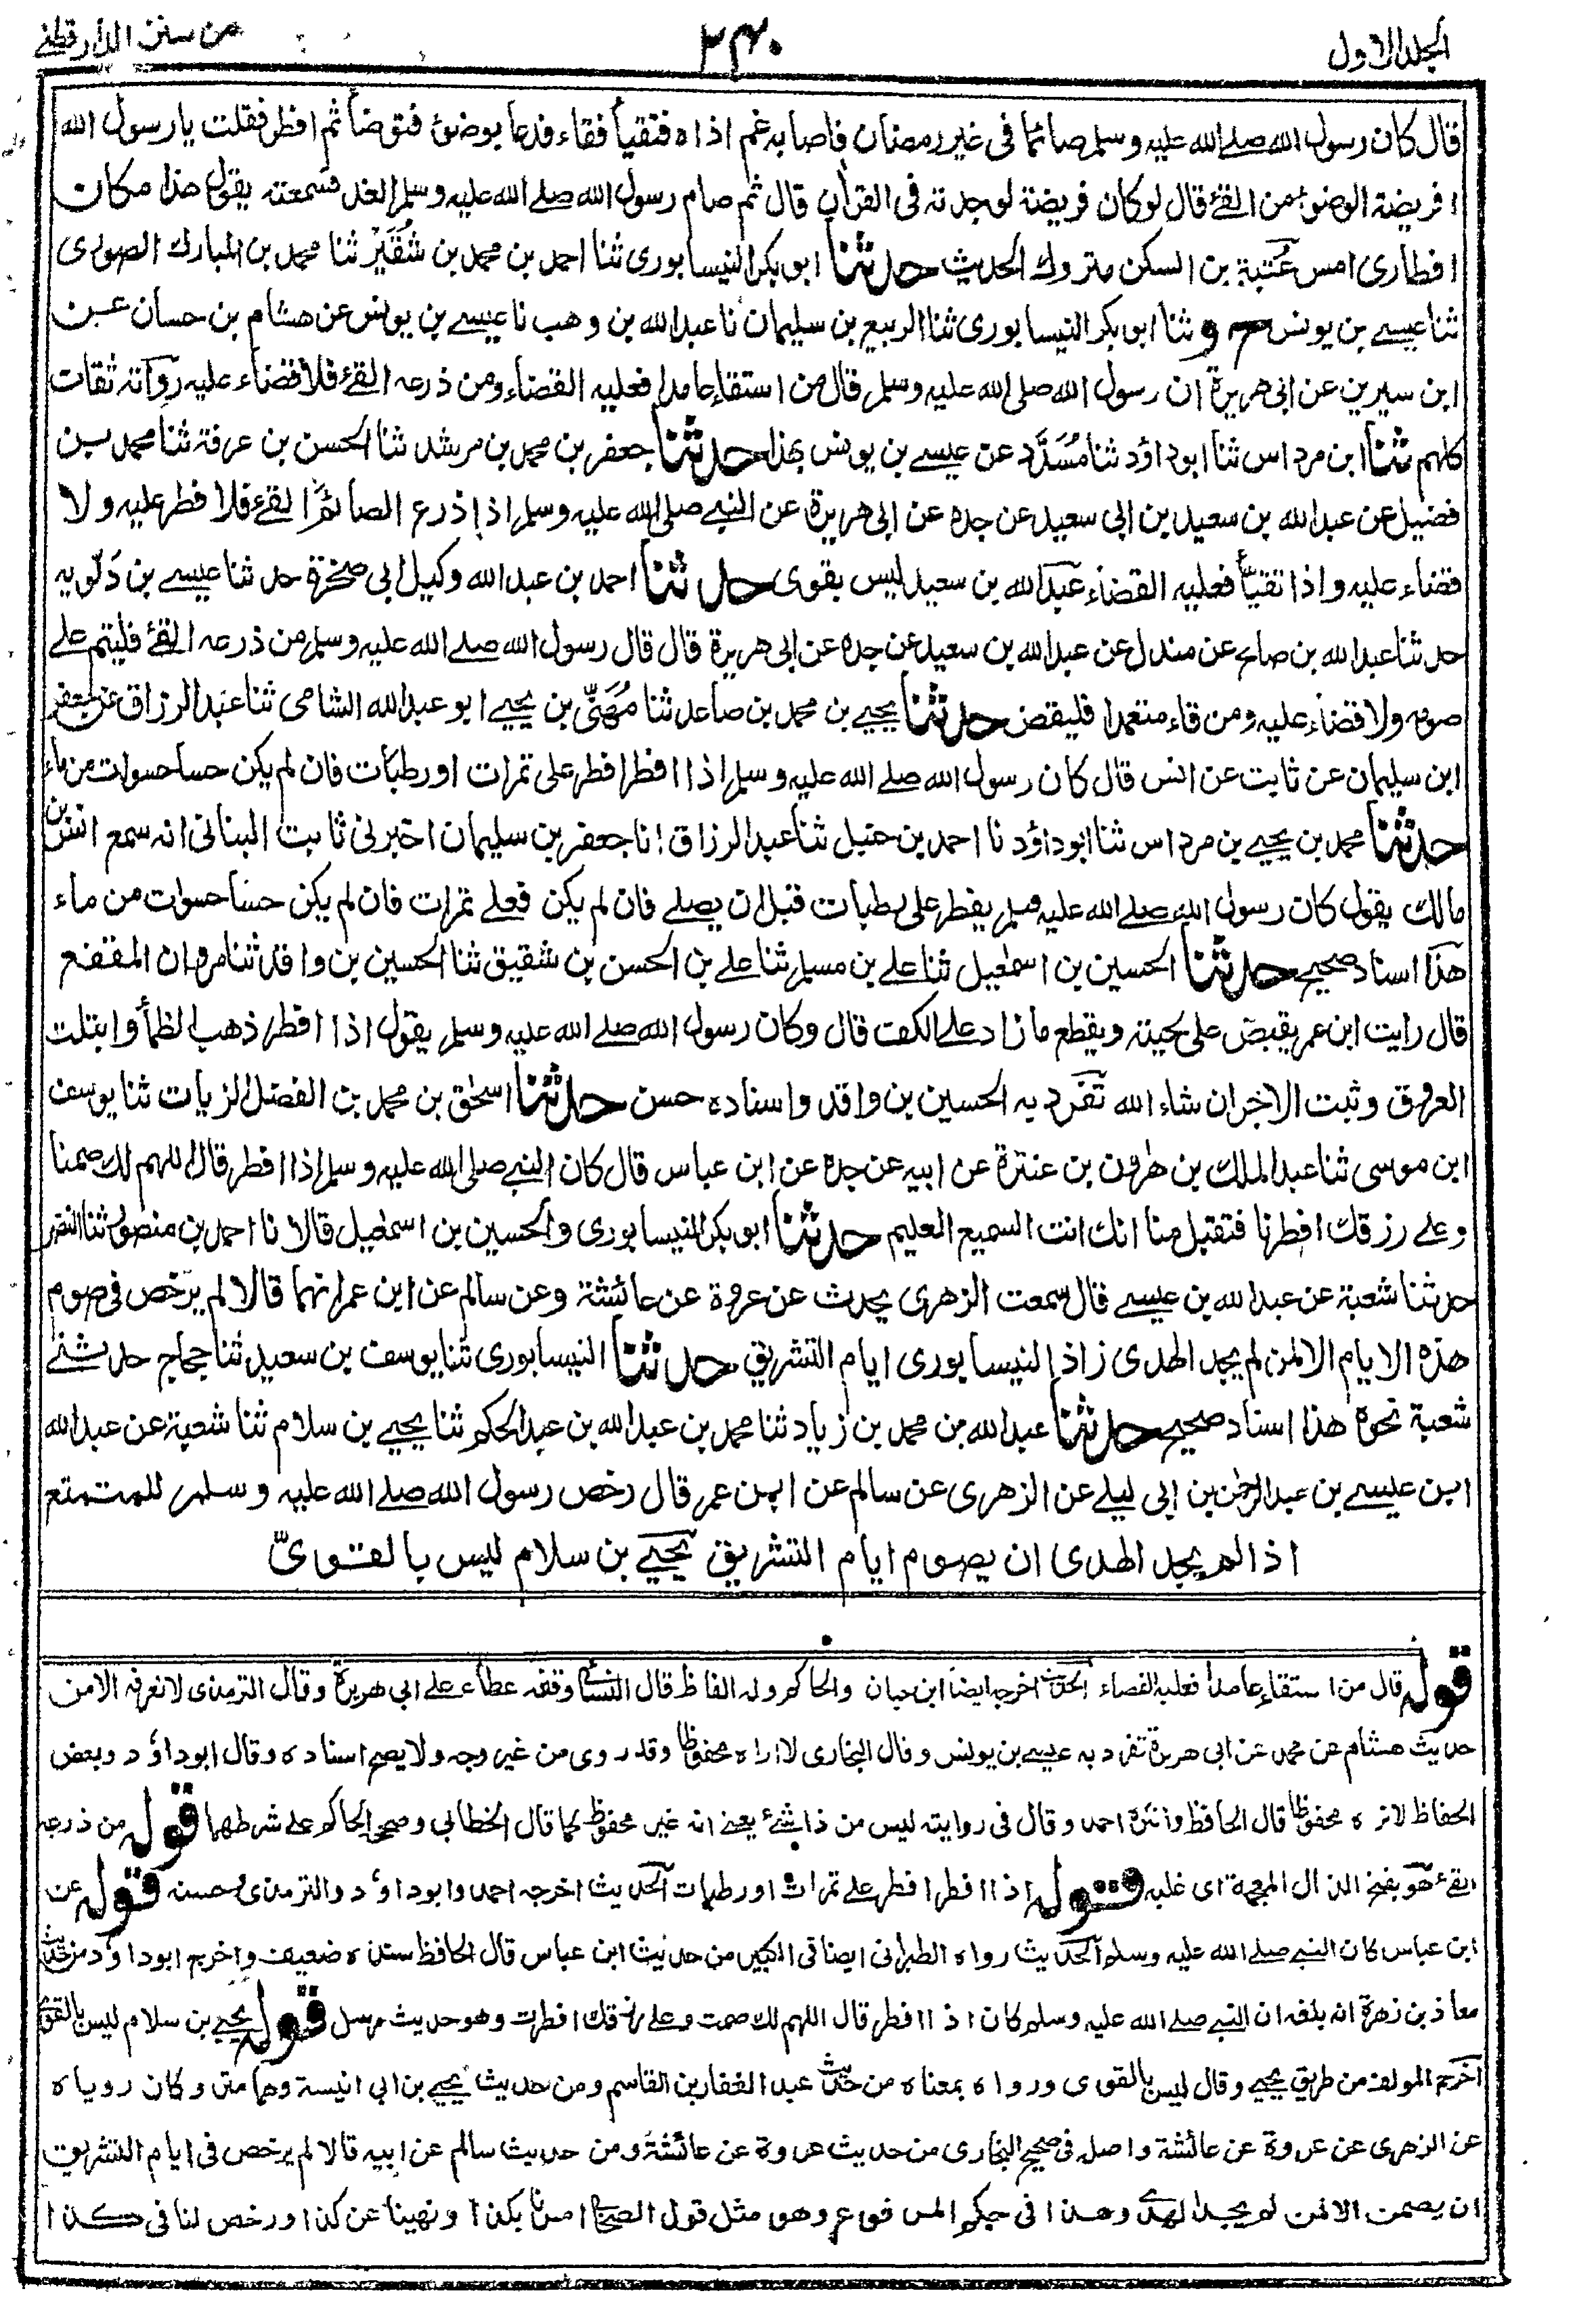 الجلد الاول
٢٤٠
من سنن الدارقطنے
قال كان رسول الله صلے الله عليه وسلم صائما فى غير رمضان فاصابه غم اذاه فتقيأ فقاء فدعا بوضوئ فتوضأ ثم افطر فقلت يا رسول الله
افريضة الوضوء من القئ قال لو كان فريضة لوجدته فى القرآن قال ثم صام رسول الله صلے الله عليه وسلم الغد فسمعته يقول هذا مكان
افطارى امس عُتبة بن السكن متروك الحديث حدثنا ابو بكر النيسابورى ثنا احمد بن محمد بن شُقَير ثنا محمد بن المبارك الصورى
ثنا عيسے بن يونس ح و ثنا ابو بكر النيسابورى ثنا الربيع بن سليمان نا عبد الله بن وهب نا عيسے بن يونس عن هشام بن حسان عن
ابن سيرين عن ابى هريرة ان رسول الله صلى الله عليه وسلم قال من استقاء عامدا فعليه القضاء ومن ذرعه القئ فلا قضاء عليه رواته ثقات
كلهم ثنا ابن مرداس ثنا ابو داؤد ثنا مُسَدَّد عن عيسے بن يونس بهذا حدثنا جعفر بن محمد بن مرشد ثنا الحسن بن عرفة ثنا محمد بن
فضيل عن عبد الله بن سعيد بن ابى سعيد عن جده عن ابى هريرة عن النبے صلى الله عليه وسلم اذا ذرع الصائم القئ فلا فطر عليه ولا
قضاء عليه واذا تقيأ فعليه القضاء عبد الله بن سعيد ليس بقوى حدثنا احمد بن عبد الله وكيل ابى صخرة حدثنا عيسے بن دَلّويه
حدثنا عبد الله بن صالح عن مندل عن عبد الله بن سعيد عن جده عن ابى هريرة قال قال رسول الله صلے الله عليه وسلم من ذرعه القئ فليتم علے
صومه ولا قضاء عليه ومن قاء متعمدا فليقض حدثنا يحيے بن محمد بن صاعد ثنا مُهَنّى بن يحيے ابو عبد الله الشامى ثنا عبد الرزاق عن جعفر
ابن سليمان عن ثابت عن انس قال كان رسول الله صلے الله عليه وسلم اذا افطر افطر على تمرات او رطبات فان لم يكن حسا حسوات من ماء
حدثنا محمد بن يحيے بن مرداس ثنا ابو داؤد نا احمد بن حنبل ثنا عبد الرزاق انا جعفر بن سليمان اخبرنى ثابت البنانى انه سمع انس بن
مالك يقول كان رسول الله صلے الله عليه وسلم يفطر على رطبات قبل ان يصلے فان لم يكن فعلے تمرات فان لم يكن حسا حسوات من ماء
هذا اسناد صحيح حدثنا الحسين بن اسمعيل ثنا علے بن مسلم ثنا علے بن الحسن بن شقيق ثنا الحسين بن واقد ثنا مروان المقفع
قال رايت ابن عمر يقبض على لحيته ويقطع ما زاد علے الكف قال وكان رسول الله صلے الله عليه وسلم يقول اذا افطر ذهب الظمأ وابتلت
العروق وثبت الاجر ان شاء الله تفرد به الحسين بن واقد واسناده حسن حدثنا اسحق بن محمد بن الفضل الزيات ثنا يوسف
ابن موسى ثنا عبد الملك بن هارون بن عنترة عن ابيه عن جده عن ابن عباس قال كان النبے صلى الله عليه وسلم اذا افطر قال اللهم لك صمنا
وعلے رزقك افطرنا فتقبل منا انك انت السميع العليم حدثنا ابو بكر النيسابورى والحسين بن اسمعيل قالا نا احمد بن منصور ثنا النضر
حدثنا شعبة عن عبد الله بن عيسے قال سمعت الزهرى يحدث عن عروة عن عائشة وعن سالم عن ابن عمر انهما قالا لم يرخص فى صوم
هذه الايام الا لمن لم يجد الهدى زاد النيسابورى ايام التشريق حدثنا النيسابورى ثنا يوسف بن سعيد ثنا حجاج حدثنے
شعبة نحوه هذا اسناد صحيح حدثنا عبد الله بن محمد بن زياد ثنا محمد بن عبد الله بن عبد الحكم ثنا يحيے بن سلام ثنا شعبة عن عبد الله
ابن عيسے بن عبد الرحمن بن ابى ليلے عن الزهرى عن سالم عن ابن عمر قال رخص رسول الله صلے الله عليه وسلم للمتمتع
اذا لم يجد الهدى ان يصوم ايام التشريق يحيے بن سلام ليس بالقوىّ
قوله قال من استقاء عامدا فعليه القضاء الحديث اخرجه ايضا ابن حبان والحاكم وله الفاظ قال النسائى وقفه عطاء على ابى هريرة وقال الترمذى لا نعرفه الا من
حديث هشام عن محمد عن ابى هريرة تفرد به عيسے بن يونس وقال البخارى لا اراه محفوظا وقد روى من غير وجه ولا يصح اسناده وقال ابو داؤد وبعض
الحفاظ لا نره محفوظا قال الحافظ وانكره احمد وقال فى روايته ليس من ذا شئ يعنے انه غير محفوظ كما قال الخطابى وصححه الحاكم على شرطهما قوله من ذرعه
القئ هو بفتح الذال المعجمة اى غلبه قوله اذا افطر افطر علے تمرات او رطبات الحديث اخرجه احمد وابو داؤد والترمذى وحسنه قوله عن
ابن عباس كان النبے صلے الله عليه وسلم الحديث رواه الطبرانى ايضا فى الكبير من حديث ابن عباس قال الحافظ سنده ضعيف واخرج ابو داؤد من حديث
معاذ بن زهرة انه بلغه ان النبے صلے الله عليه وسلم كان اذا افطر قال اللهم لك صمت وعلے رزقك افطرت وهو حديث مرسل قوله يحيے بن سلام ليس بالقوى
اخرجه المولف من طريق يحيے وقال ليس بالقوى ورواه بمعناه من حديث عبد الغفار بن القاسم ومن حديث يحيے بن ابى انيسة وهما متر وكان روياه
عن الزهرى عن عروة عن عائشة واصله فى صحيح البخارى من حديث عروة عن عائشة ومن حديث سالم عن ابيه قالا لم يرخص فى ايام التشريق
ان يصمن الا لمن لم يجد الهدى وهذا فى حكم المرفوع وهو مثل قول الصحابى امرنا بكذا ونهينا عن كذا ورخص لنا فى كذا